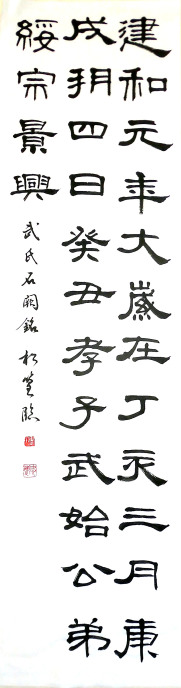 建和元年大歲在丁亥三月庚
戌朔四日癸丑孝子武始公弟
綏宗景興
武氏石闕銘 松篁臨